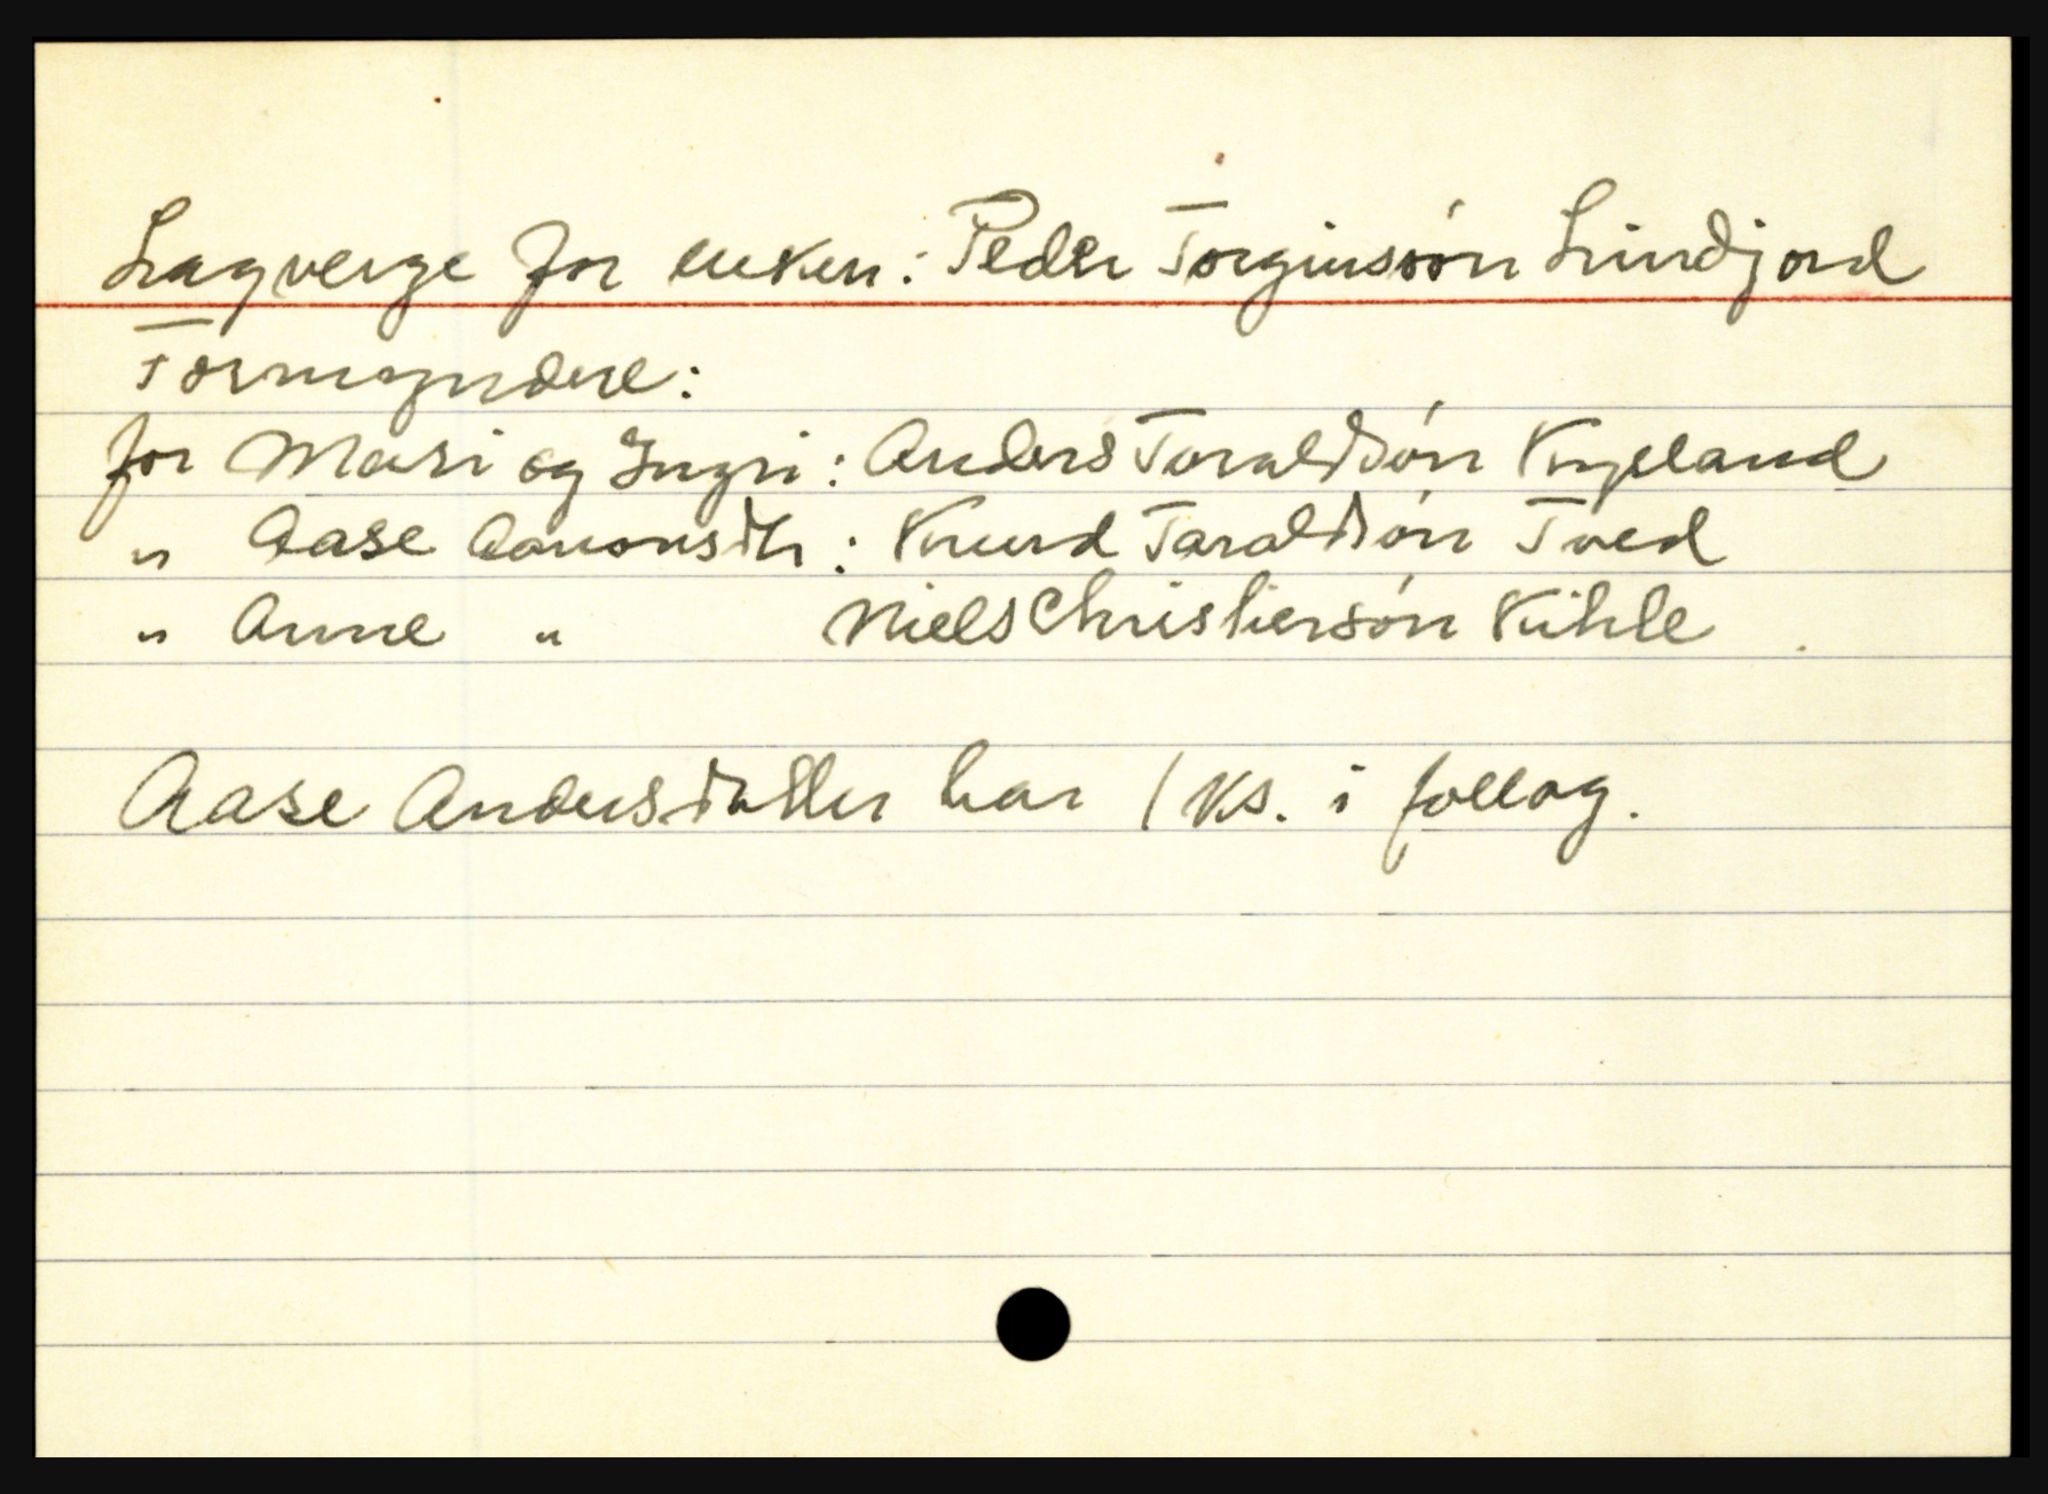 Lagverge for enken: Peder Torginssón Lindjord
Formyndere:
for Mari og Ingri: Anders Taraldsón Kypeland
" Aase Aanonsdtr: Knud Taraldsón Tved
" Anne " Niels Christiersón Kihle
Aase Andersdatter har 1 ks. i follog.